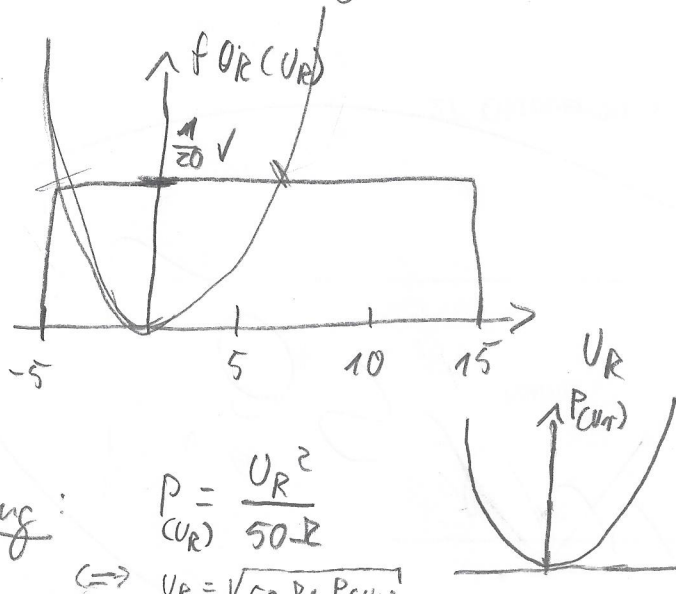 f U_R (U_R)
1/20 V
-5 5 10 15
U_R
P(U_R)
ung: P(U_R) = U_R² / 50 Ω
<=> U_R = √